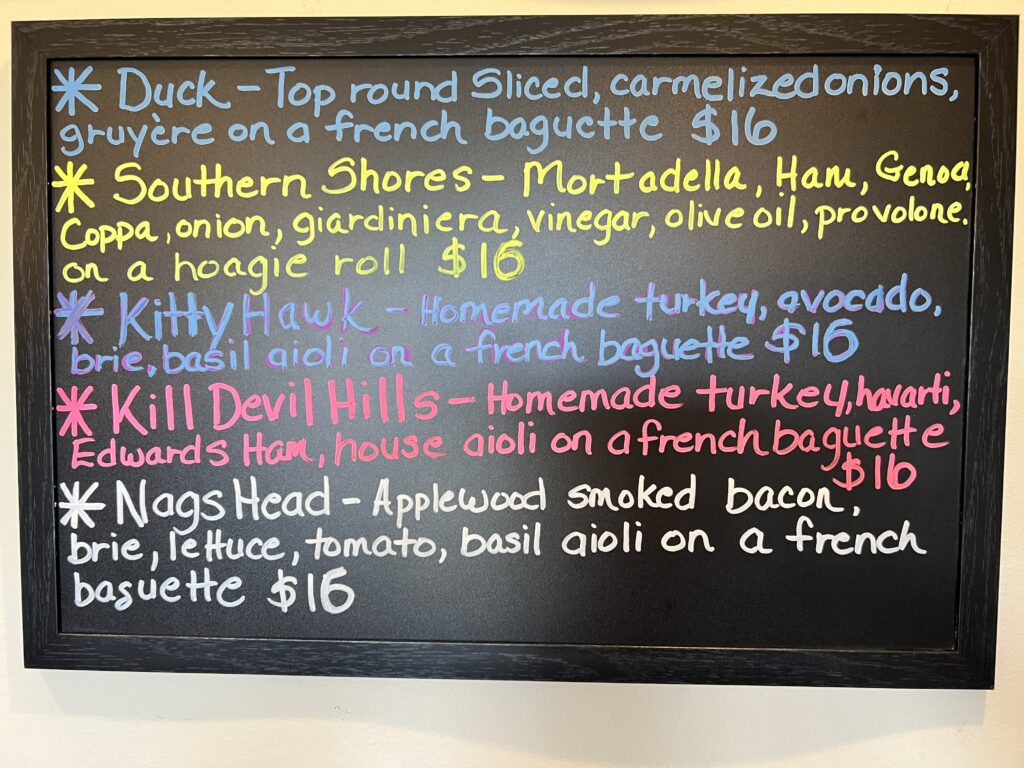 * Duck - Top round Sliced, carmelized onions,
gruyère on a french baguette $16
* Southern Shores - Mortadella, Ham, Genoa,
Coppa, onion, giardiniera, vinegar, olive oil, provolone.
on a hoagie roll $16
* Kitty Hawk - Homemade turkey, avocado,
brie, basil aioli on a french baguette $16
* Kill Devil Hills - Homemade turkey, havarti,
Edwards Ham, house aioli on a french baguette
$16
* Nags Head - Applewood smoked bacon,
brie, lettuce, tomato, basil aioli on a french
baguette $16